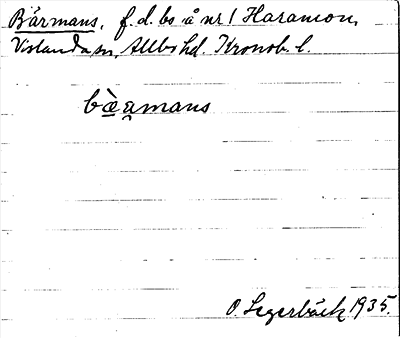 Bärmans, f.d. bs å nr 1 Haramon,
Vislanda sn, Allbo hd. Kronob. l.
bæ̀rmans
O. Segerbäck 1935.